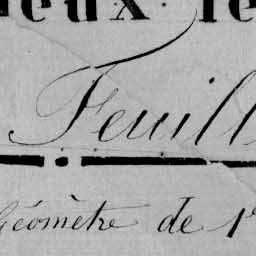 eux le
Feuill
Géomètre de 1